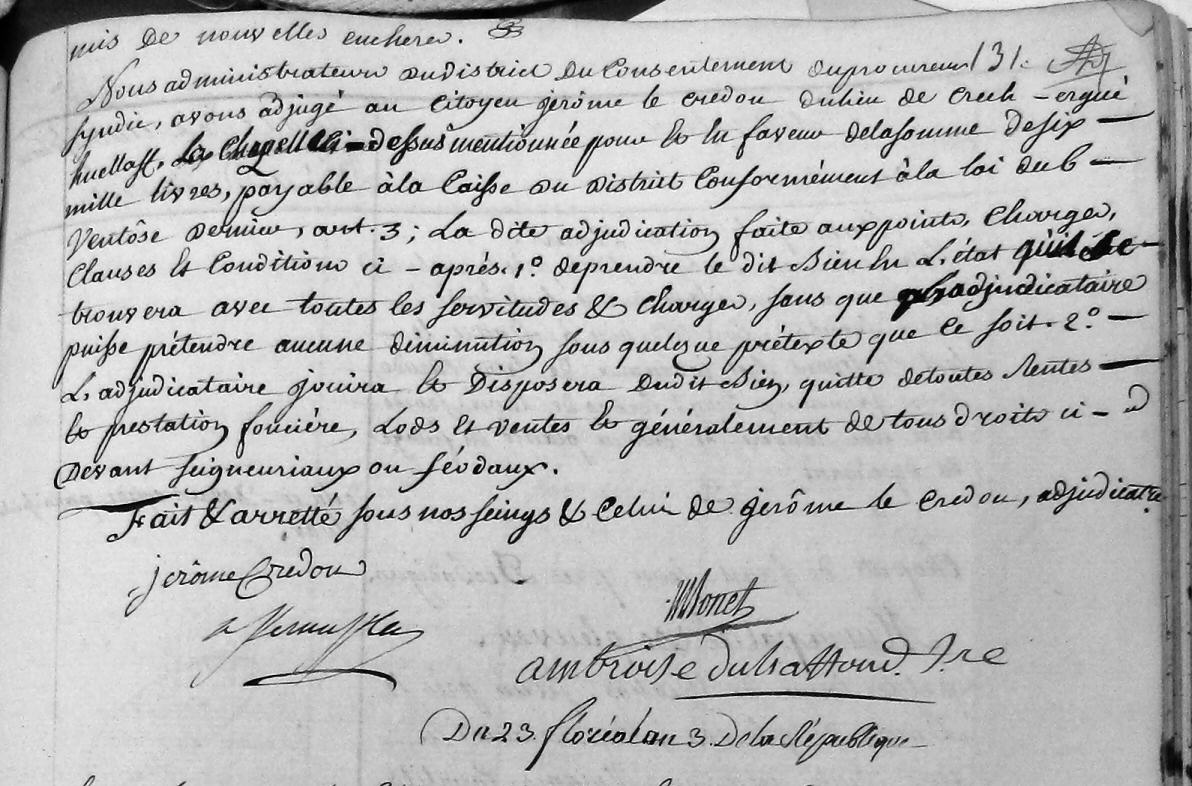 mis de nouvelles encheres.
131.
Nous administrateurs du district du Consentement du procureur
syndic, avons adjugé au Citoyen jérôme le credou du lieu de Crech-ergué
huellaff, La Chapelle ci-dessus mentionnée pour et en faveur de la somme de six
mille livres, payable à la Caisse du District Conformément à la loi du 6
Ventôse dernier, art. 3; La dite adjudication faite aux points, Charges,
Clauses et Conditions ci-aprés. 1º de prendre le dit Bien en L'état qu'il se
trouvera avec toutes les servitudes & Charges, sans que l'adjudicataire
puisse prétendre aucune diminution sous quelque prétexte que ce soit. 2º
L'adjudicataire jouira et Disposera dudit Bien, quitte de toutes Rentes
et prestation foncière, Lods et ventes et généralement de tous droits ci-
Devant seigneuriaux ou féodaux.
Fait & arretté sous nos seings & Celui de jérôme le Credou, adjudicatre.
jerôme Credou
Monet
ambroise
Du 23. floréal an 3. De la République